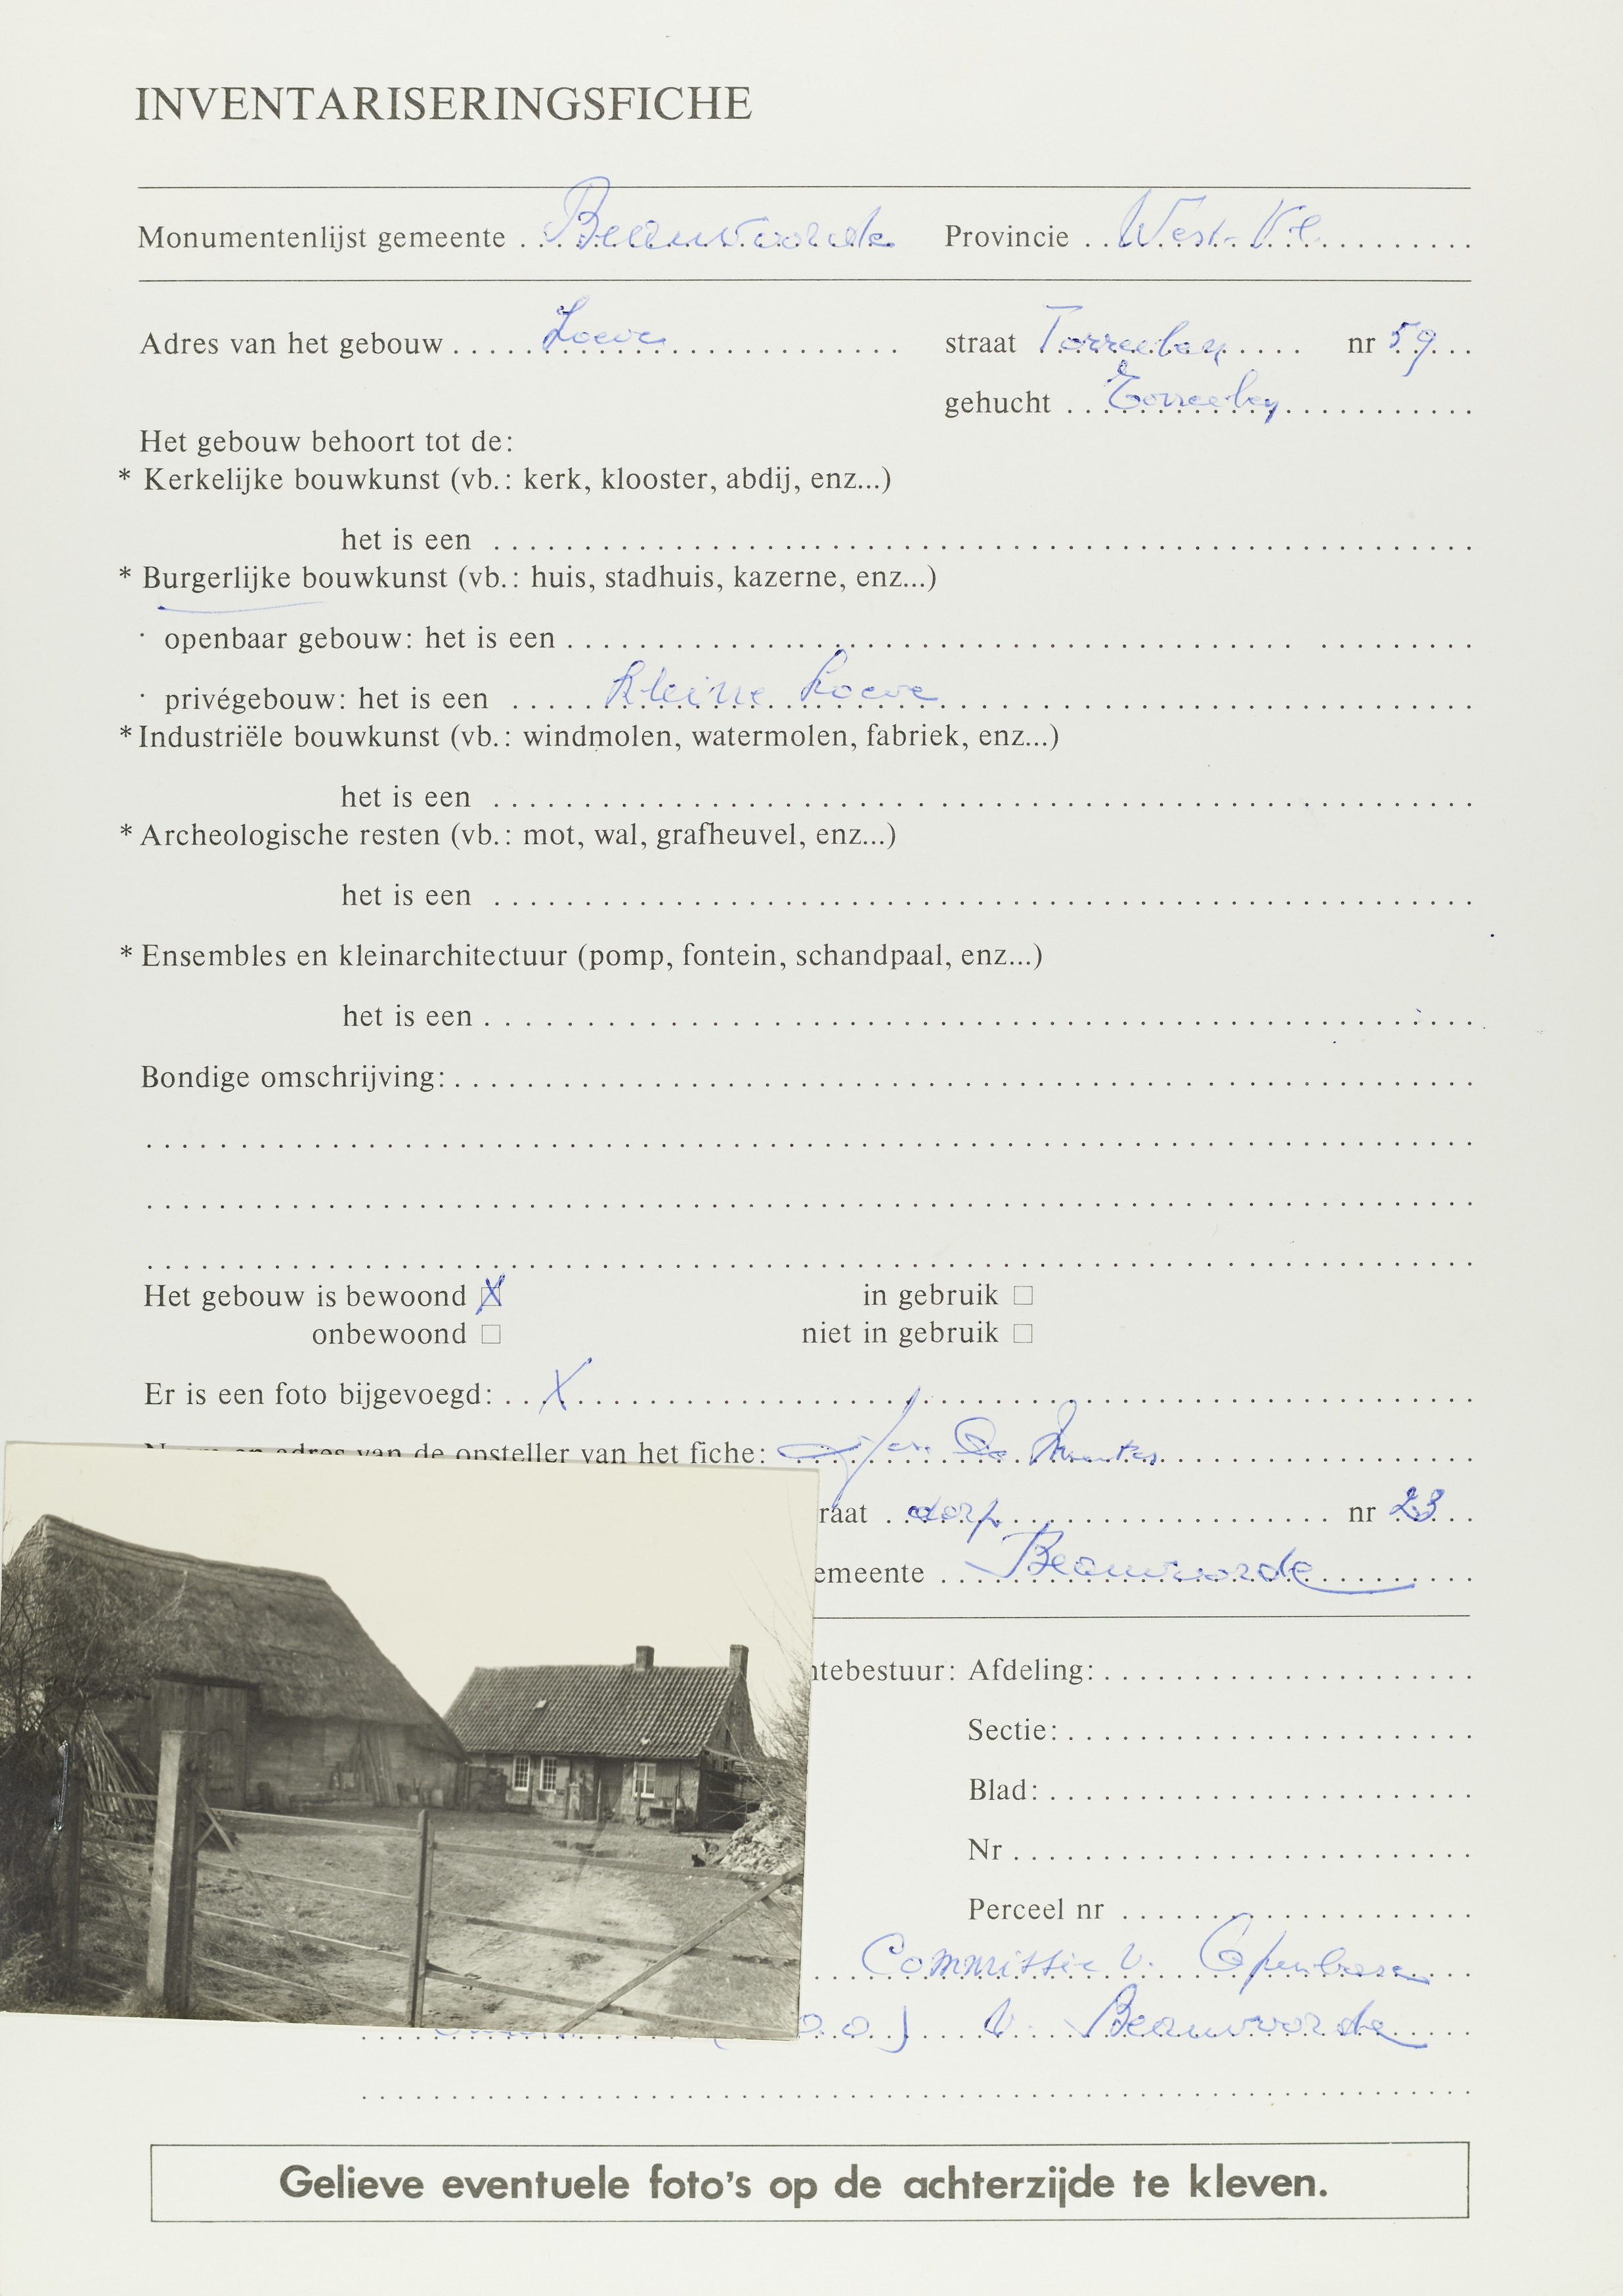 INVENTARISERINGSFICHE
Monumentenlijst gemeente Beauvoorde Provincie West-Vl.
Adres van het gebouw Hoeve straat Torreeley nr 59
gehucht Torreeley
Het gebouw behoort tot de:
* Kerkelijke bouwkunst (vb.: kerk, klooster, abdij, enz...)
het is een
* Burgerlijke bouwkunst (vb.: huis, stadhuis, kazerne, enz...)
· openbaar gebouw: het is een
· privégebouw: het is een kleine hoeve
* Industriële bouwkunst (vb.: windmolen, watermolen, fabriek, enz...)
het is een
* Archeologische resten (vb.: mot, wal, grafheuvel, enz...)
het is een
* Ensembles en kleinarchitectuur (pomp, fontein, schandpaal, enz...)
het is een
Bondige omschrijving:
Het gebouw is bewoond X in gebruik
onbewoond niet in gebruik
Er is een foto bijgevoegd: X
adres van de opsteller van het fiche: De
raat dorp nr 23
emeente Beauvoorde
tebestuur: Afdeling:
Sectie:
Blad:
Nr
Perceel nr
Commissie v. Openbare
o.o.) v. Beauvoorde
Gelieve eventuele foto's op de achterzijde te kleven.